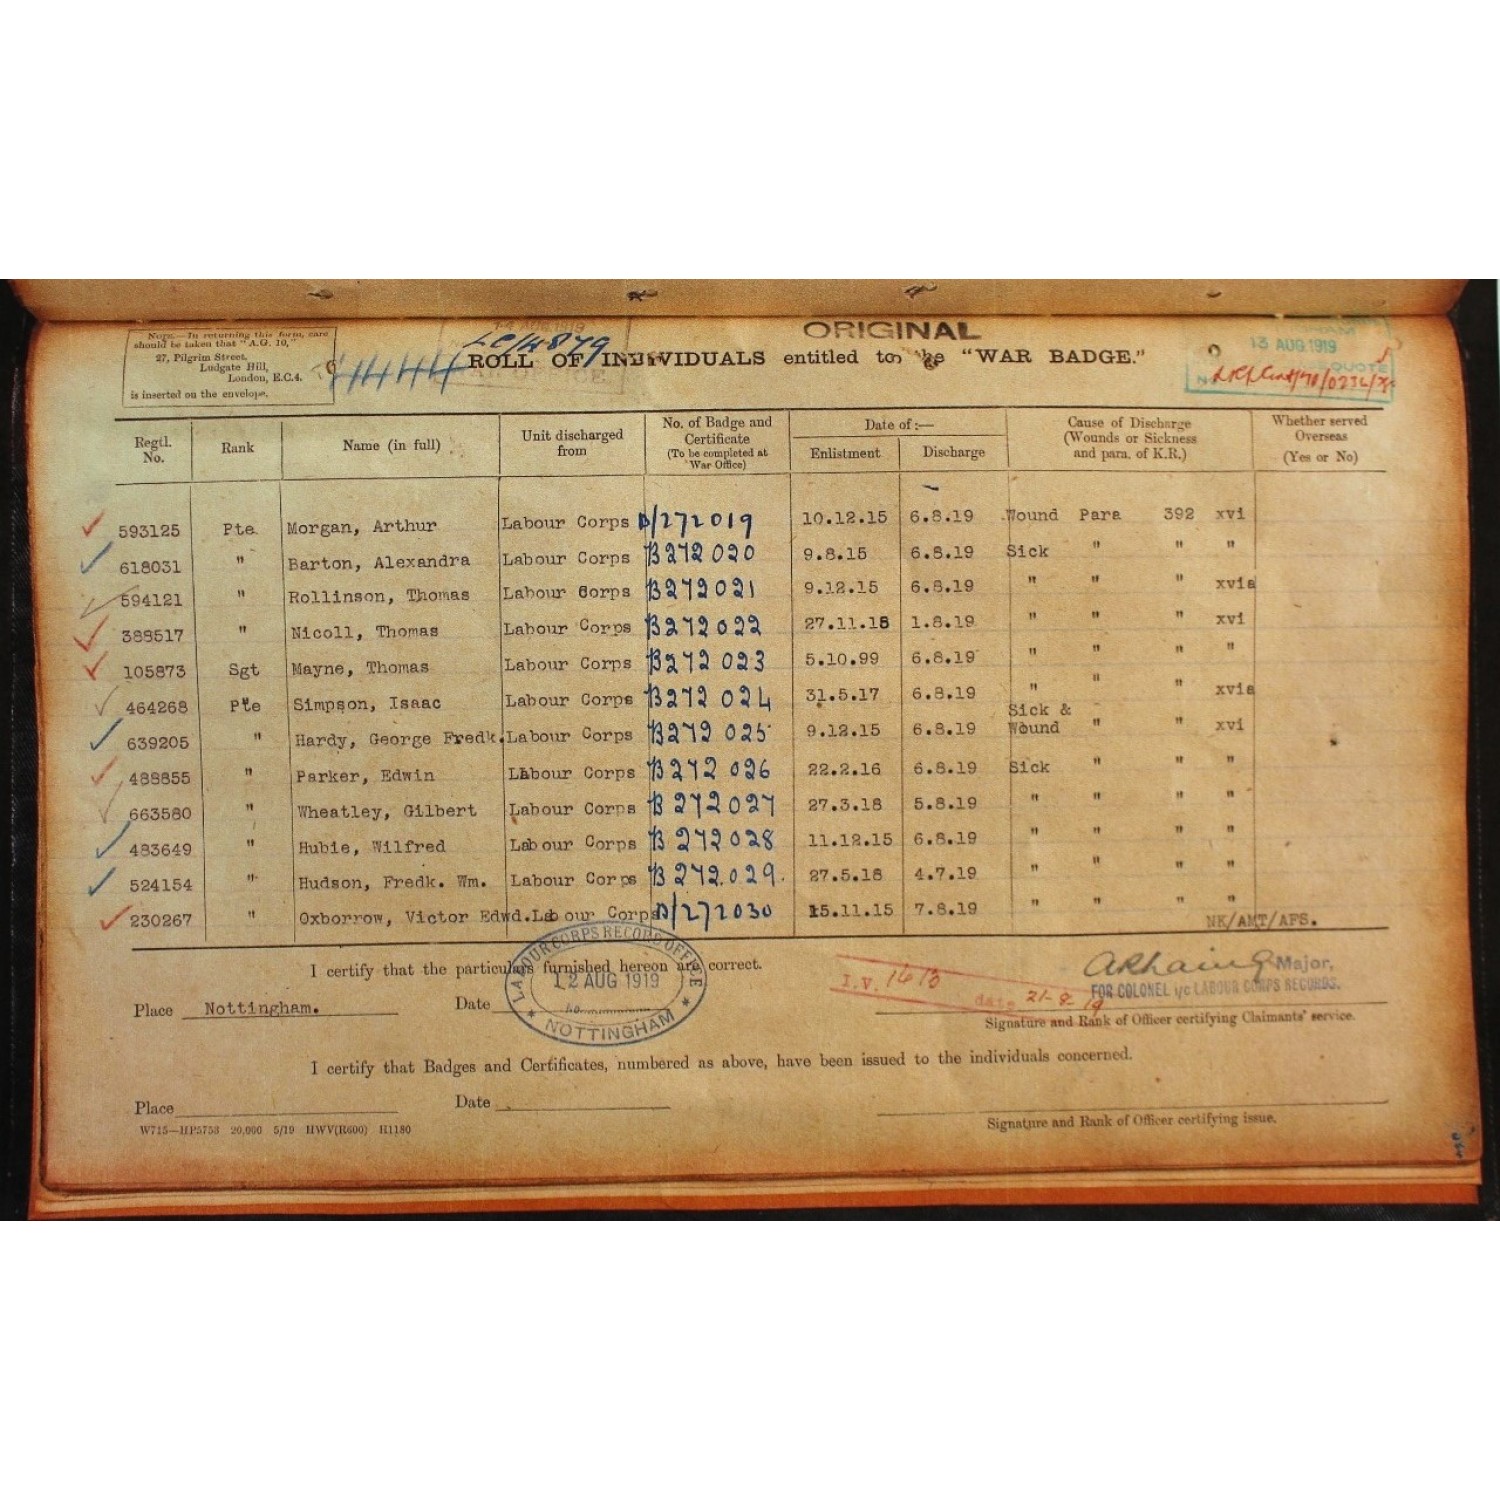 ORIGINAL
Note.—In returning this form, care
should be taken that "A.G. 10,"
27, Pilgrim Street,
Ludgate Hill,
London, E.C.4.
is inserted on the envelope.
14 AUG 1919
LC/4879
13 AUG 1919
QUOTE
ROLL OF INDIVIDUALS entitled to the "WAR BADGE."
Regtl. No. Rank Name (in full) Unit discharged from No. of Badge and Certificate (To be completed at War Office) Date of :— Enlistment Discharge Cause of Discharge (Wounds or Sickness and para. of K.R.) Whether served Overseas (Yes or No)
593125 Pte. Morgan, Arthur Labour Corps B/272019 10.12.15 6.8.19 Wound Para 392 xvi
618031 " Barton, Alexandra Labour Corps B272020 9.8.15 6.8.19 Sick " " "
594121 " Rollinson, Thomas Labour Corps B272021 9.12.15 6.8.19 " " " xvia
388517 " Nicoll, Thomas Labour Corps B272022 27.11.18 1.8.19 " " " xvi
105873 Sgt Mayne, Thomas Labour Corps B272023 5.10.99 6.8.19 " " " "
464268 Pte Simpson, Isaac Labour Corps B272024 31.5.17 6.8.19 " " " xvia
639205 " Hardy, George Fredk. Labour Corps B272025 9.12.15 6.8.19 Sick & Wound " " xvi
488855 " Parker, Edwin Labour Corps B272026 22.2.16 6.8.19 Sick " " "
663580 " Wheatley, Gilbert Labour Corps B272027 27.3.18 5.8.19 " " " "
483649 " Hubie, Wilfred Labour Corps B272028 11.12.15 6.8.19 " " " "
524154 " Hudson, Fredk. Wm. Labour Corps B272029. 27.5.18 4.7.19 " " " "
230267 " Oxborrow, Victor Edwd. Labour Corps B/272030 15.11.15 7.8.19 " " " "
NK/AMT/AFS.
I certify that the particulars furnished hereon are correct.
LABOUR CORPS RECORD OFFICE
12 AUG 1919
No.
NOTTINGHAM
I.V. 1413
date 21-8-19
Major,
FOR COLONEL i/c LABOUR CORPS RECORDS.
Place Nottingham. Date
Signature and Rank of Officer certifying Claimants' service.
I certify that Badges and Certificates, numbered as above, have been issued to the individuals concerned.
Place Date
Signature and Rank of Officer certifying issue.
W715—HP5753 20,000 5/19 HWV(R600) H1180